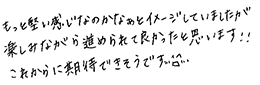 もっと堅い感じなのかなぁとイメージしていましたが
楽しみながら進められて良かったと思います!!
これからに期待できそうです…^^…